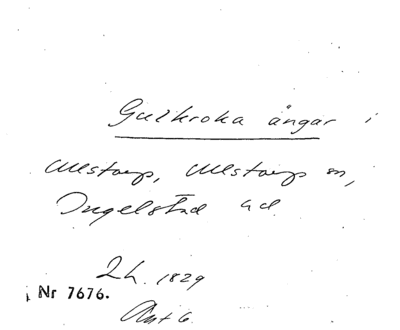 Gullkroka ängar i
Ullstorp, Ullstorps sn,
Ingelstad hd
2 h. 1829
Nr 7676.
Akt 6.